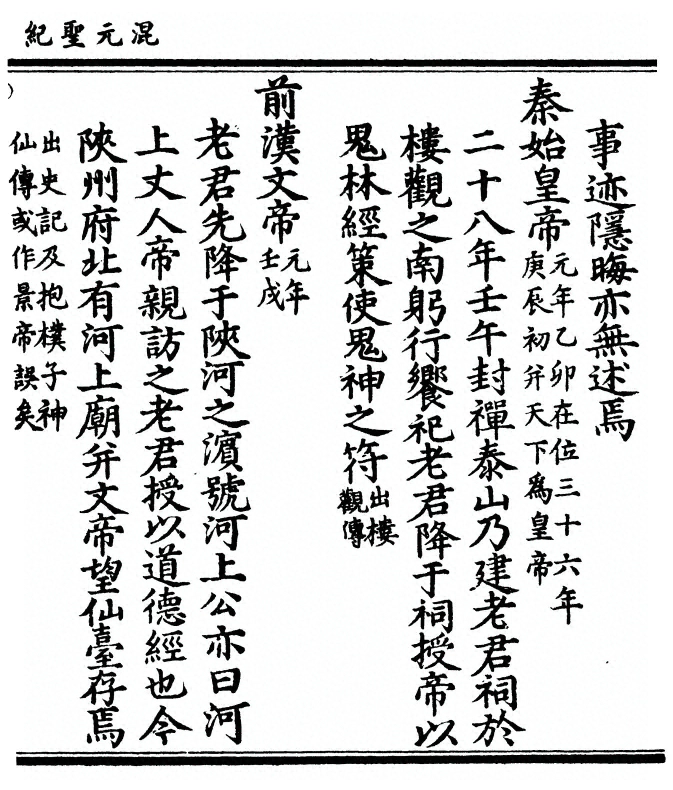 混元聖紀
事迹隱晦亦無述焉
秦始皇帝元年乙卯在位三十六年
庚辰初并天下爲皇帝
二十八年壬午封禪泰山乃建老君祠於
樓觀之南躬行饗祀老君降于祠授帝以
鬼林經策使鬼神之符出樓
觀傳
前漢文帝元年
壬戌
老君先降于陝河之濵號河上公亦曰河
上丈人帝親訪之老君授以道德經也今
陝州府北有河上廟并文帝望仙臺存焉
出史記及抱樸子神
仙傳或作景帝誤矣